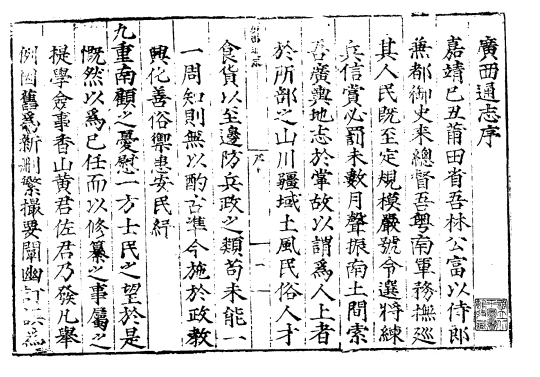 廣西通志序
嘉靖己丑莆田省吾林公富以侍郎
兼都御史來總督吾粤南軍務撫廵
其人民既至定規模嚴號令選將練
兵信賞必罰未數月聲振南土間索
吾廣輿地志於掌故以謂為人上者
於所部之山川疆域土風民俗人才
食貨以至邊防兵政之類苟未能一
一周知則無以酌古準今施於政敎
興化善俗禦患安民紓
九重南顧之憂慰一方士民之望於是
慨然以為己任而以修纂之事屬之
提學僉事香山黄君佐君乃發凡舉
例因舊為新刪繁撮要闡幽訂